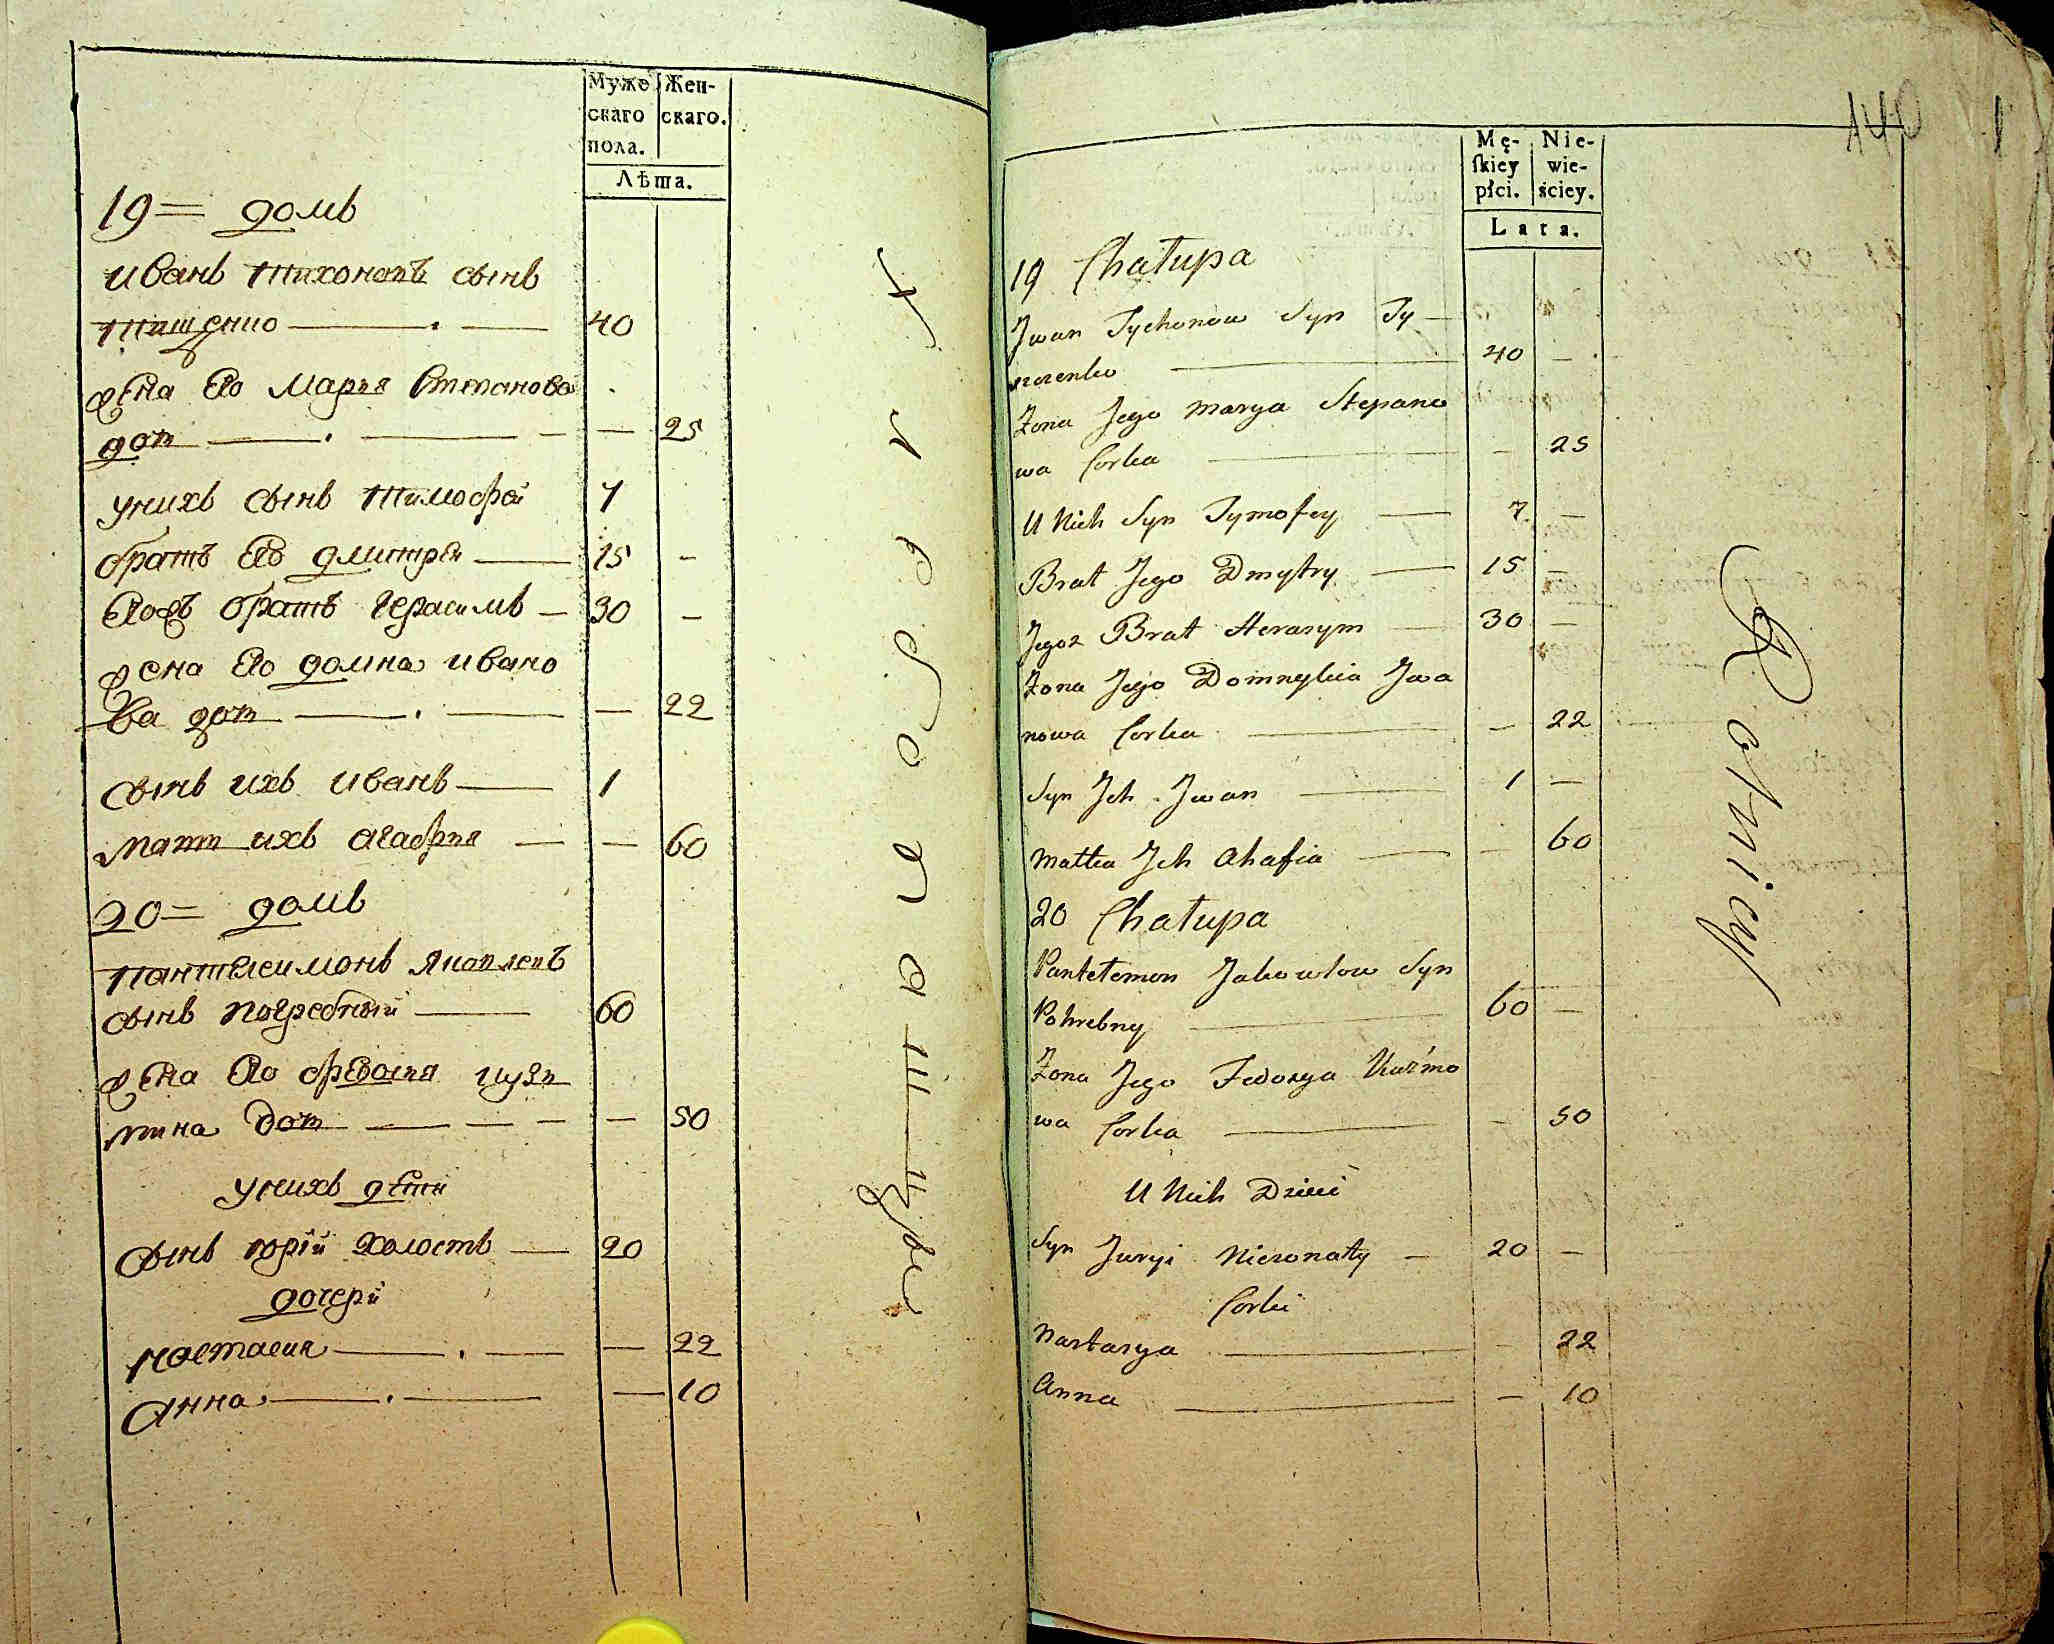 Муже
скаго
пола.
Жен-
скаго.
Лѣта.
19 = домъ
Иванъ Тихоновъ сынъ
Тищенко — . — 40
жена Его Марья Степанова
дот — . — — — 25
унихъ сынъ Тимофей 7
братъ Его Дмитрей — 15 -
Егожъ братъ Герасимъ — 30 -
жена Его домна ивано
ва дот — . — — 22
сынъ ихъ Иванъ — 1
мать ихъ Агафия — — 60
20 = домъ
Пантелеимонъ Яковлевъ
сынъ погребный — 60
жена Его федосия кузь
мина дот — — — — 50
унихъ дети
сынъ юрій холостъ — 20
дочери
настасия — . — — 22
Анна — . — — 10
140
1
Mę-
skiey
płci.
Nie-
wie-
ściey.
Lata.
19 Chałupa
Jwan Tychonow Syn Ty —
szczenko — 40 —
Żona Jego Marya Stepano
wa Corka — - 25
U Nich Syn Tymofey — 7 —
Brat Jego Dmytry — 15 —
Jegoz Brat Herasym — 30 —
Żona Jego Domnykia Jwa
nowa Corka — — 22
Syn Jch Jwan — 1 —
Matka Jch Ahafia — — 60
20 Chałupa
Pantełemon Jakowlow Syn
Pohrebny — 60 —
Żona Jego Fedosya Kuźmo
wa Corka — - 50
U Nich Dzieci
Syn Juryi Nieżonaty — 20 —
Corki
Nastasya — - 22
Anna — — 10
Rolnicy